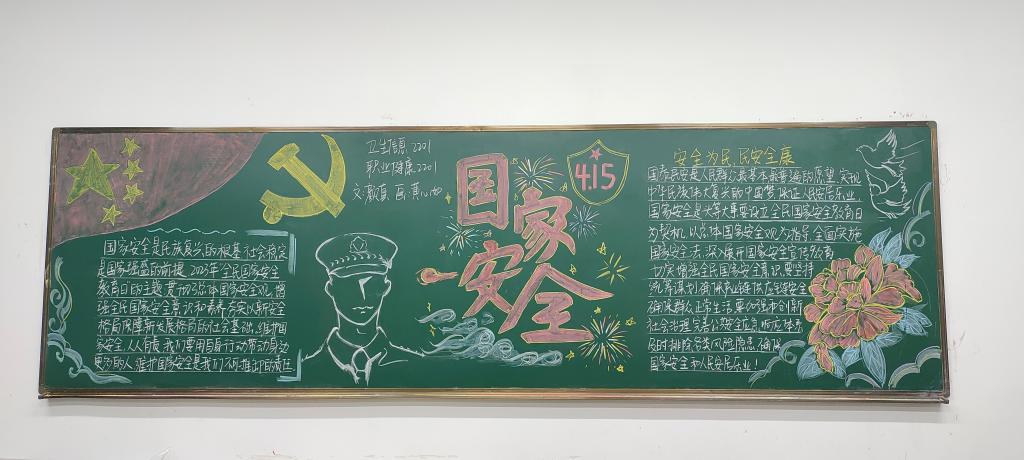 卫生信息2201
职业健康2201
国家安全
4.15
国家安全是民族复兴的根基社会稳定
是国家强盛的前提.2023年全民国家安全
教育日的主题:贯彻总体国家安全观,增
强全民国家安全意识和素养夯实以新安全
格局保障新发展格局的社会基础.维护国
家安全.人人有责我们要用自身行动带动身边
更多的人,维护国家安全是我们不可推卸的责任
安全为民,民安全康
国泰民安是人民群众最基本最普遍的愿望.实现
中华民族伟大复兴的中国梦.保证人民安居乐业,
国家安全是头等大事要设立全民国家安全教育日
为契机,以总体国家安全观为指导,全面实施
国家安全法,深入开展国家安全宣传教育
切实增强全民国家安全意识.要坚持
确保群众正常生活.要加强和创新
社会治理,完善公共安全应急响应体系
及时排除各类风险隐患.确保
国家安全和人民安居乐业!